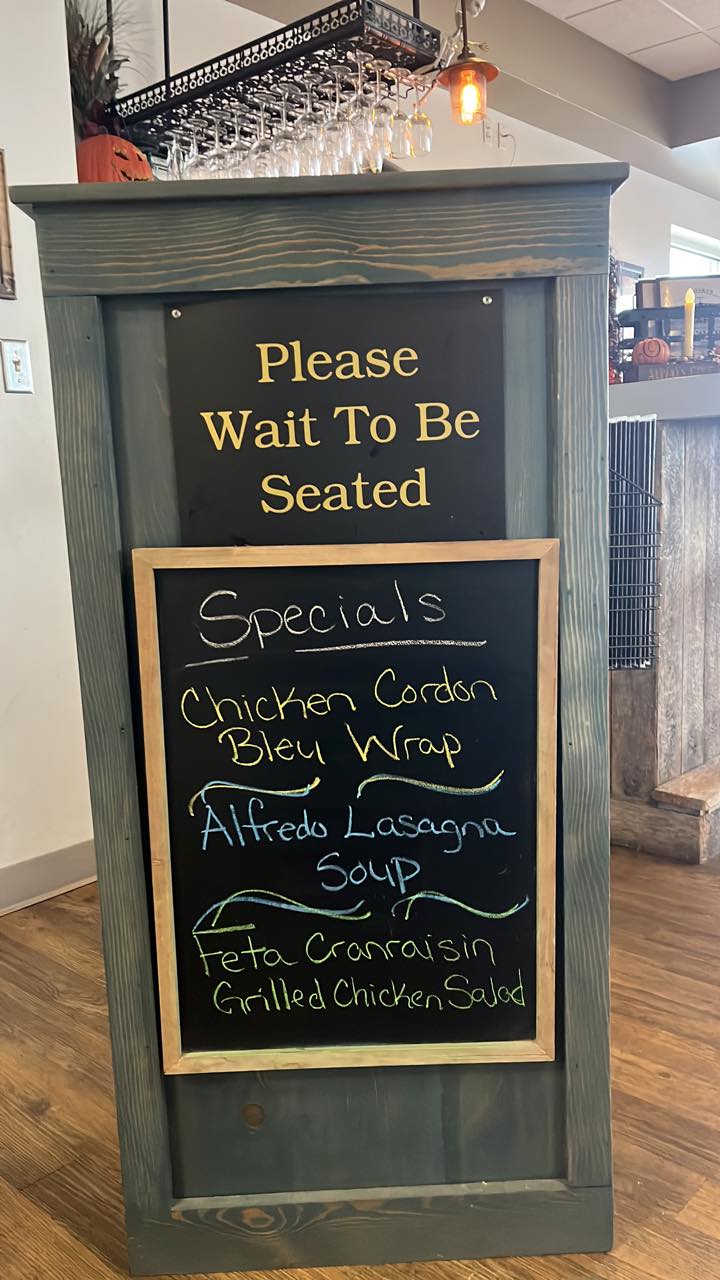 Please
Wait To Be
Seated
Specials
Chicken Cordon
Bleu Wrap
Alfredo Lasagna
Soup
Feta Cranraisin
Grilled Chicken Salad